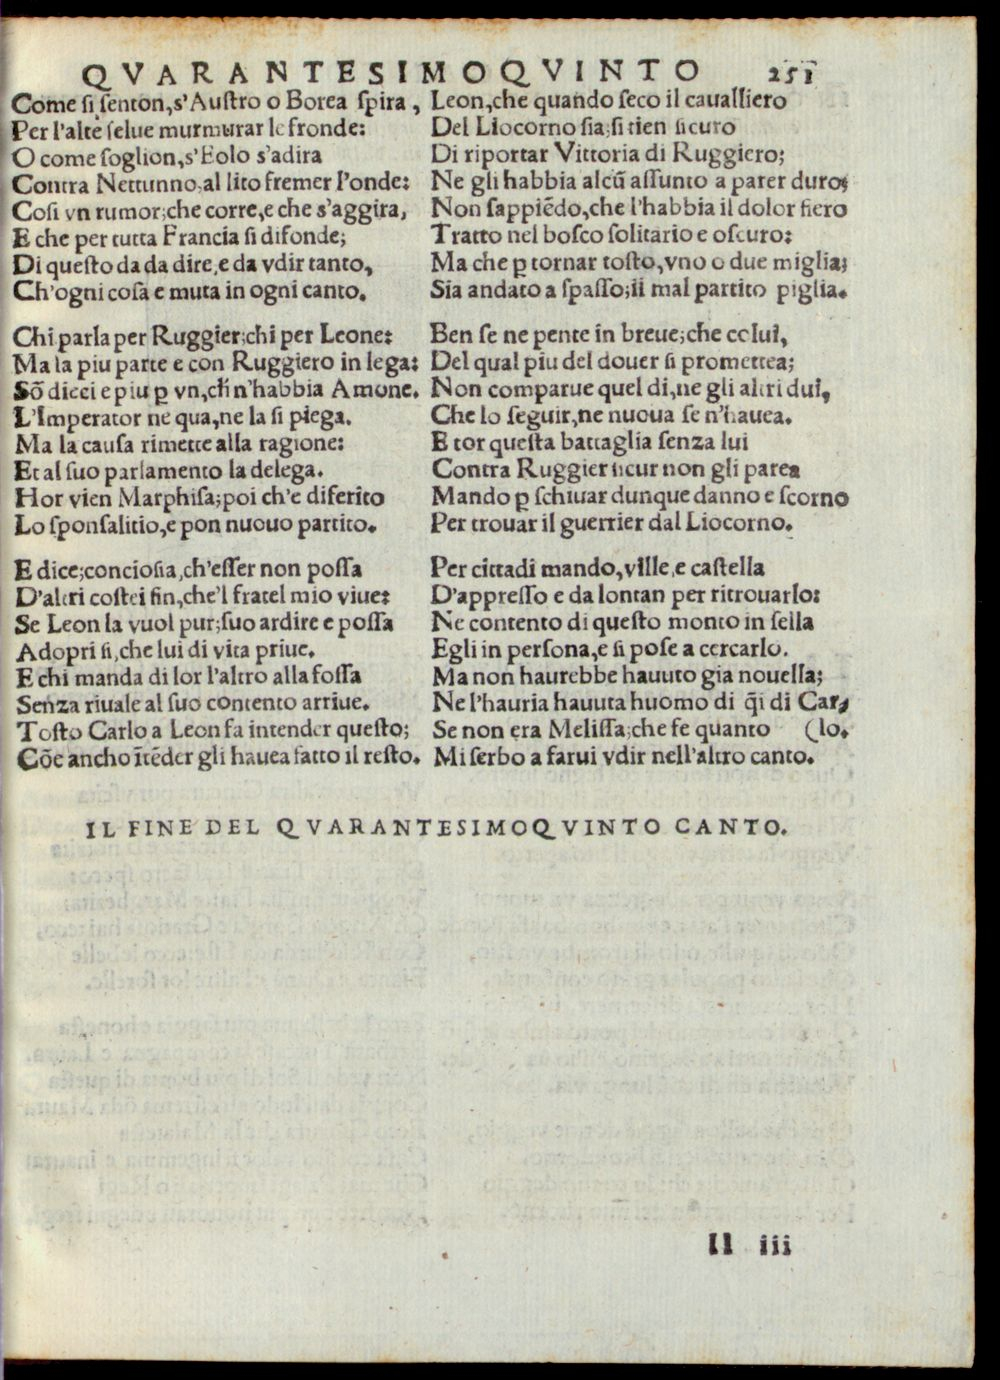 QVARANTESIMOQVINTO 251
Come si senton, s'Austro o Borea spira,
Per l'alte selue murmurar le fronde:
O come soglion, s'Eolo s'adira
Contra Nettunno, al lito fremer l'onde:
Cosi vn rumor; che corre, e che s'aggira,
E che per tutta Francia si difonde;
Di questo da da dire, e da vdir tanto,
Ch'ogni cosa e muta in ogni canto.
Chi parla per Ruggier; chi per Leone:
Ma la piu parte e con Ruggiero in lega:
Sõ dieci e piu ꝑ vn, ch n'habbia Amone.
L'Imperator ne qua, ne la si piega.
Ma la causa rimette alla ragione:
Et al suo parlamento la delega.
Hor vien Marphisa; poi ch'e diferito
Lo sponsalitio, e pon nuouo partito.
E dice; conciosia, ch'esser non possa
D'altri costei fin, che'l fratel mio viue:
Se Leon la vuol pur; suo ardire e possa
Adopri si, che lui di vita priue.
E chi manda di lor l'altro alla fossa
Senza riuale al suo contento arriue.
Tosto Carlo a Leon fa intender questo;
Cõe ancho ĩtẽder gli hauea fatto il resto.
Leon, che quando seco il caualliero
Del Liocorno sia; si tien sicuro
Di riportar Vittoria di Ruggiero;
Ne gli habbia alcũ assunto a parer duro;
Non sappiẽdo, che l'habbia il dolor fiero
Tratto nel bosco solitario e oscuro:
Ma che ꝑ tornar tosto, vno o due miglia;
Sia andato a spasso; il mal partito piglia.
Ben se ne pente in breue; che colui,
Del qual piu del douer si promettea;
Non comparue quel di, ne gli altri dui,
Che lo seguir, ne nuoua se n'hauea.
E tor questa battaglia senza lui
Contra Ruggier sicur non gli parea
Mando ꝑ schiuar dunque danno e scorno
Per trouar il guerrier dal Liocorno.
Per cittadi mando, ville, e castella
D'appresso e da lontan per ritrouarlo:
Ne contento di questo monto in sella
Egli in persona, e si pose a cercarlo.
Ma non haurebbe hauuto gia nouella;
Ne l'hauria hauuta huomo di q̃i di Car,
Se non era Melissa; che fe quanto (lo.
Mi serbo a farui vdir nell'altro canto.
IL FINE DEL QVARANTESIMOQVINTO CANTO.
II iii